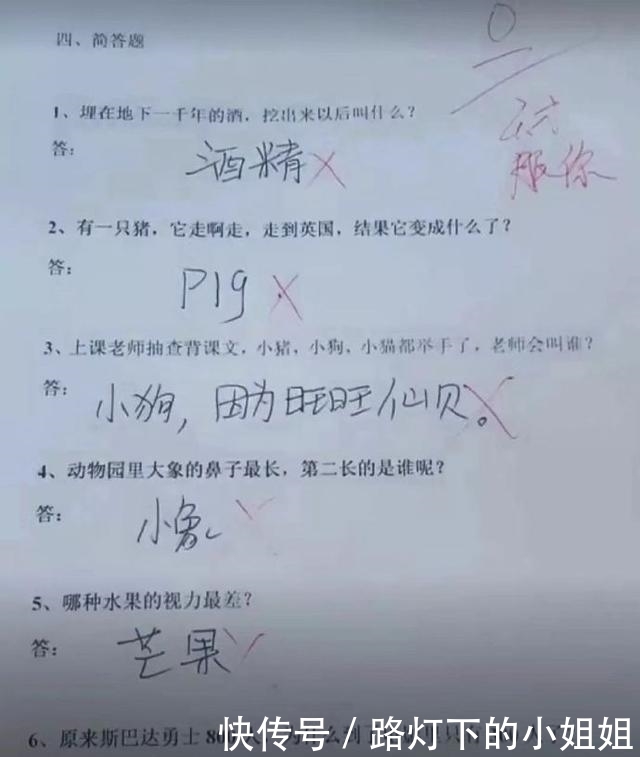 四、简答题
0
服你
1、埋在地下一千年的酒，挖出来以后叫什么？
答：
酒精
2、有一只猪，它走啊走，走到英国，结果它变成什么了？
答：
PIg
3、上课老师抽查背课文，小猪，小狗、小猫都举手了，老师会叫谁？
答：
小狗，因为旺旺仙贝。
4、动物园里大象的鼻子最长，第二长的是谁呢？
答：
小象
5、哪种水果的视力最差？
答：
芒果
6、原来斯巴达勇士 8
快传号 / 路灯下的小姐姐